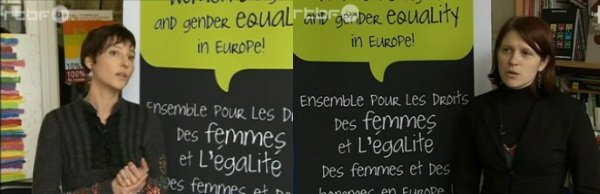 rtbf.be
and gender equality
in Europe!
Ensemble pour les Droits
Des femmes
et l'égalité
Des femmes et des
rtbf
rights
and gender equality
in Europe!
Ensemble pour les Droits
Des femmes
et l'égalité
Des femmes et des
hommes en Europe !